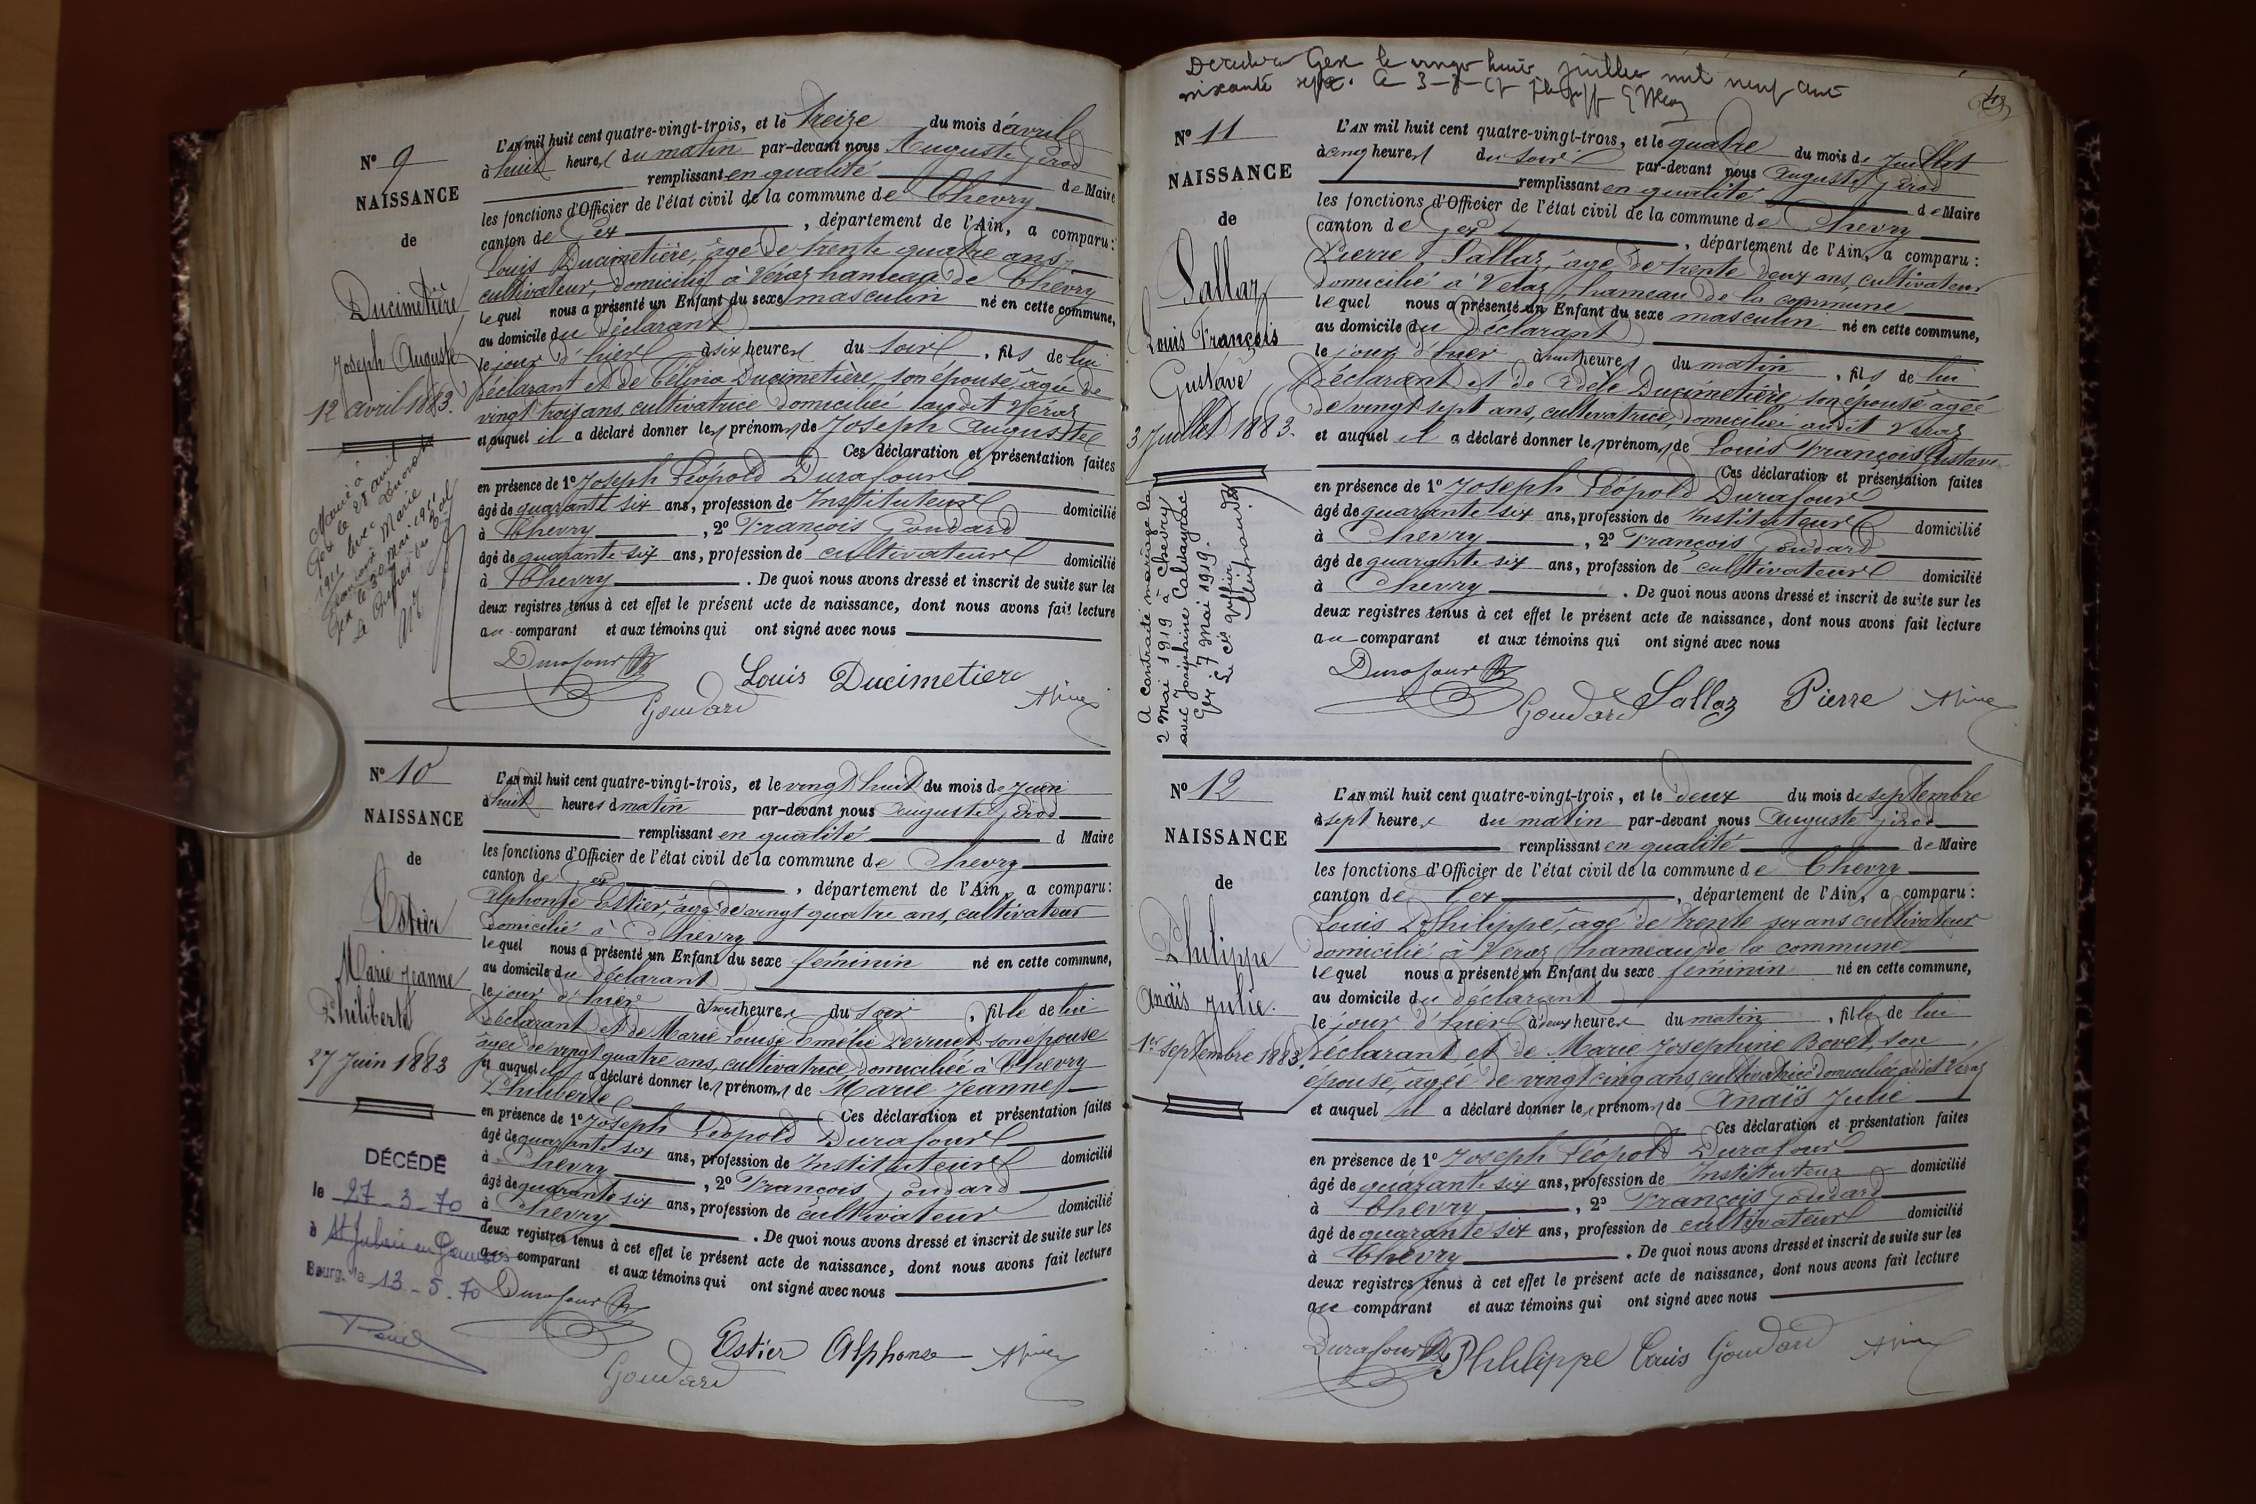 N° 9
NAISSANCE
de
Ducimetière
Joseph Auguste
12 avril 1883.
Marié à
Gex le 28 avril
1911 avec
François Marie
Gex le 30 mai 1911
Le Greffier
L'AN mil huit cent quatre-vingt-trois, et le treize du mois d'avril
à huit heures du matin par-devant nous Auguste Girod
remplissant en qualité de Maire
les fonctions d'Officier de l'état civil de la commune de Chevry
canton de Gex, département de l'Ain, a comparu:
Louis Ducimetière, âgé de trente quatre ans,
cultivateur, domicilié à Véraz hameau de Chevry
lequel nous a présenté un Enfant du sexe masculin né en cette commune,
au domicile du déclarant
le jour d'hier à six heures du soir, fils de lui
déclarant et de Célina Ducimetière, son épouse, âgée de
vingt trois ans, cultivatrice domiciliée audit Véraz
et auquel il a déclaré donner les prénoms de Joseph Auguste
Ces déclaration et présentation faites
en présence de 1° Joseph Léopold Durafour
âgé de quarante six ans, profession de Instituteur domicilié
à Chevry, 2° François Goudard
âgé de quarante six ans, profession de cultivateur domicilié
à Chevry. De quoi nous avons dressé et inscrit de suite sur les
deux registres tenus à cet effet le présent acte de naissance, dont nous avons fait lecture
au comparant et aux témoins qui ont signé avec nous
Durafour
Louis Ducimetière
Goudard
N° 10
NAISSANCE
de
Estier
Marie Jeanne
Philiberte
27 Juin 1883
DÉCÉDÉ
le 27-3-70
à St Julien en Genevois
Bourg, le 13-5-70
L'AN mil huit cent quatre-vingt-trois, et le vingt huit du mois de Juin
à huit heures d matin par-devant nous Auguste Girod
remplissant en qualité d Maire
les fonctions d'Officier de l'état civil de la commune de Chevry
canton de Gex, département de l'Ain, a comparu:
Alphonse Estier, âgé de vingt quatre ans, cultivateur
domicilié à Chevry
lequel nous a présenté un Enfant du sexe féminin né en cette commune,
au domicile du déclarant
le jour d'hier à trois heures du soir, fille de lui
déclarant et de Marie Louise Emélie Perruet son épouse
âgée de vingt quatre ans, cultivatrice, domiciliée à Chevry
et auquel il a déclaré donner les prénoms de Marie Jeanne
Philiberte Ces déclaration et présentation faites
en présence de 1° Joseph Léopold Durafour
âgé de quarante six ans, profession de Instituteur domicilié
à Chevry, 2° François Goudard
âgé de quarante six ans, profession de cultivateur domicilié
à Chevry. De quoi nous avons dressé et inscrit de suite sur les
deux registres tenus à cet effet le présent acte de naissance, dont nous avons fait lecture
au comparant et aux témoins qui ont signé avec nous
Durafour
Estier Alphonse
Goudard
Gex le vingt huit juillet mil neuf cent
soixante sept.
N° 11
NAISSANCE
de
Sallaz
Louis François
Gustave
3 Juillet 1883.
A contracté mariage le
2 mai 1919 à Chevry
avec Joséphine Calvagnac
Gex, 7 mai 1919.
Le Cis Greffier
L'AN mil huit cent quatre-vingt-trois, et le quatre du mois de Juillet
à cinq heures du soir par-devant nous Auguste Girod
remplissant en qualité de Maire
les fonctions d'Officier de l'état civil de la commune de Chevry
canton de Gex, département de l'Ain, a comparu:
Pierre Sallaz, âgé de trente deux ans, cultivateur
domicilié à Véraz, hameau de la commune
lequel nous a présenté un Enfant du sexe masculin né en cette commune,
au domicile du déclarant
le jour d'hier à huit heures du matin, fils de lui
déclarant et de Adèle Ducimetière, son épouse âgée
de vingt sept ans, cultivatrice, domiciliée audit Véraz
et auquel il a déclaré donner les prénoms de Louis François Gustave
Ces déclaration et présentation faites
en présence de 1° Joseph Léopold Durafour
âgé de quarante six ans, profession de Instituteur domicilié
à Chevry, 2° François Goudard
âgé de quarante six ans, profession de cultivateur domicilié
à Chevry. De quoi nous avons dressé et inscrit de suite sur les
deux registres tenus à cet effet le présent acte de naissance, dont nous avons fait lecture
au comparant et aux témoins qui ont signé avec nous
Durafour
Goudard Sallaz Pierre
N° 12
NAISSANCE
de
Philippe
Anaïs Julie.
1er septembre 1883.
L'AN mil huit cent quatre-vingt-trois, et le deux du mois de septembre
à sept heures du matin par-devant nous Auguste Girod
remplissant en qualité de Maire
les fonctions d'Officier de l'état civil de la commune de Chevry
canton de Gex, département de l'Ain, a comparu:
Louis Philippe, âgé de trente six ans cultivateur
domicilié à Véraz, hameau de la commune
lequel nous a présenté un Enfant du sexe féminin né en cette commune,
au domicile du déclarant
le jour d'hier à deux heures du matin, fille de lui
déclarant et de Marie Joséphine Bovet, son
épouse, âgée de vingt cinq ans, cultivatrice domiciliée audit Véraz
et auquel il a déclaré donner les prénoms de Anaïs Julie
Ces déclaration et présentation faites
en présence de 1° Joseph Léopold Durafour
âgé de quarante six ans, profession de Instituteur domicilié
à Chevry, 2° François Goudard
âgé de quarante six ans, profession de cultivateur domicilié
à Chevry. De quoi nous avons dressé et inscrit de suite sur les
deux registres tenus à cet effet le présent acte de naissance, dont nous avons fait lecture
au comparant et aux témoins qui ont signé avec nous
Durafour Philippe Louis Goudard